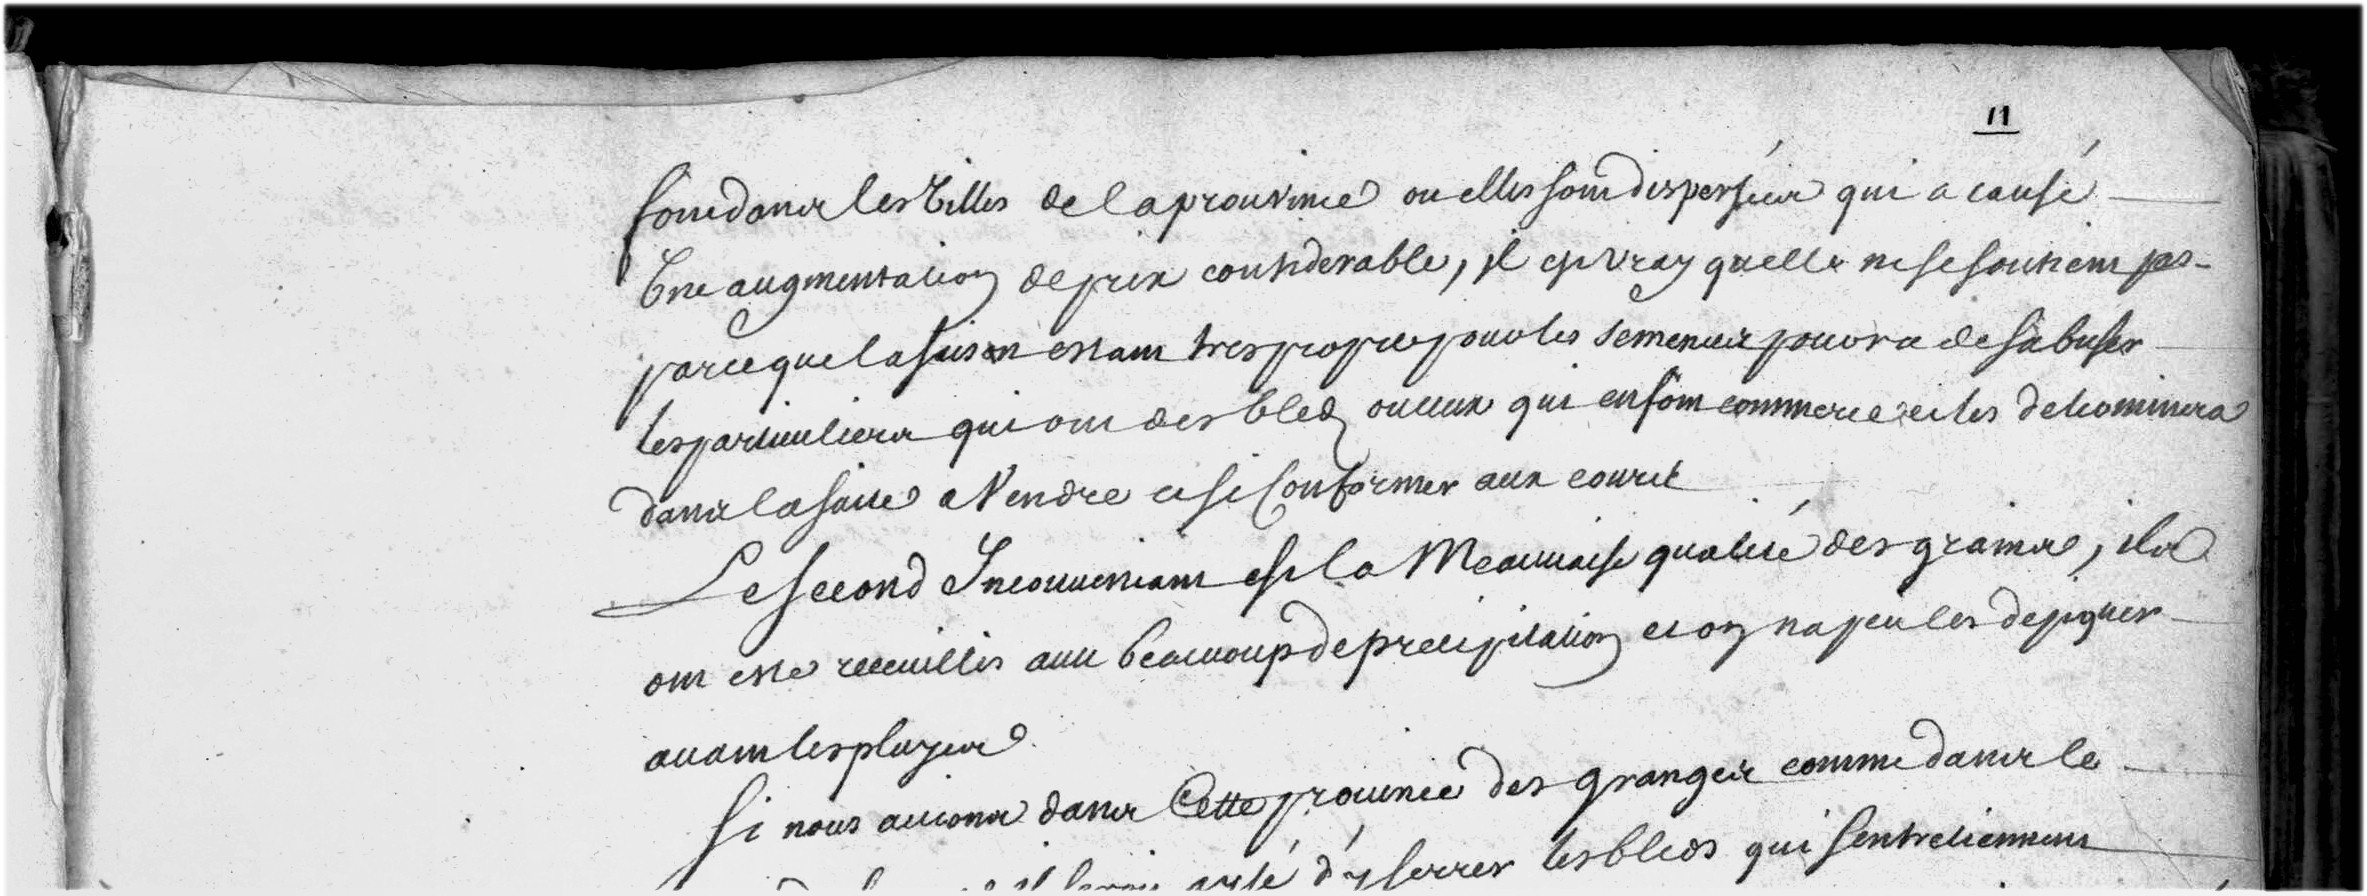 11
font dans les Villes de la prouvince ou elles sont disperséés qui a causé
Une augmentation de prix considerable, il est vray quelle ne se soutient pas
parceque la saison estant tres propre pour les semences pourra desabuser
les particuliers qui ont des bleds ou ceux qui en font commerce et les determinera
dans la suite a Vendre et se Conformer aux cours
Le second Inconueniant est la Meauuaise qualité des grains, ils
ont esté recueillis auec beaucoup de precipitation et on na peu les depiquer
auant les pluyes
Si nous auions dans Cette prouince des granges comme dans le
il seroit aysé d'y serrer les bleds qui sentretiennent